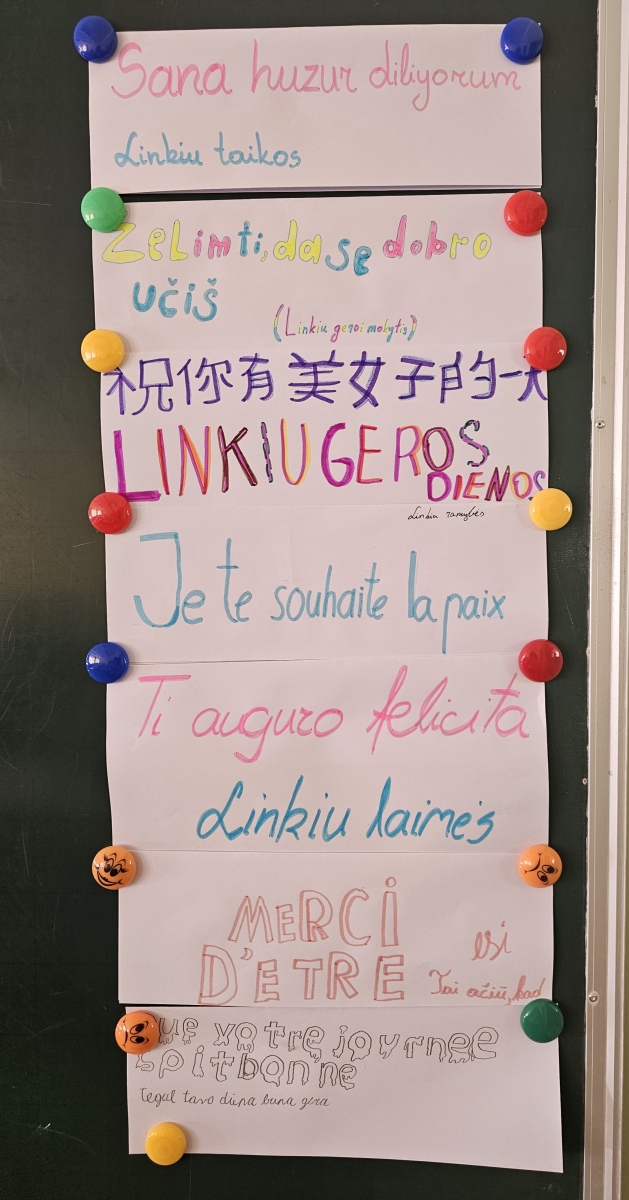 Sana huzur diliyorum
Linkiu taikos
Želim ti, da se dobro
učiš
(Linkiu gerai mokytis)
祝你有美女子的一天
LINKIU GEROS
DIENOS
Linkiu ramybės
Je te souhaite la paix
Ti auguro felicità
Linkiu laimės
MERCI
D'ETRE
esi
Tai ačiū, kad
que votre journee
soit bonne
Tegul tavo diena buna gera